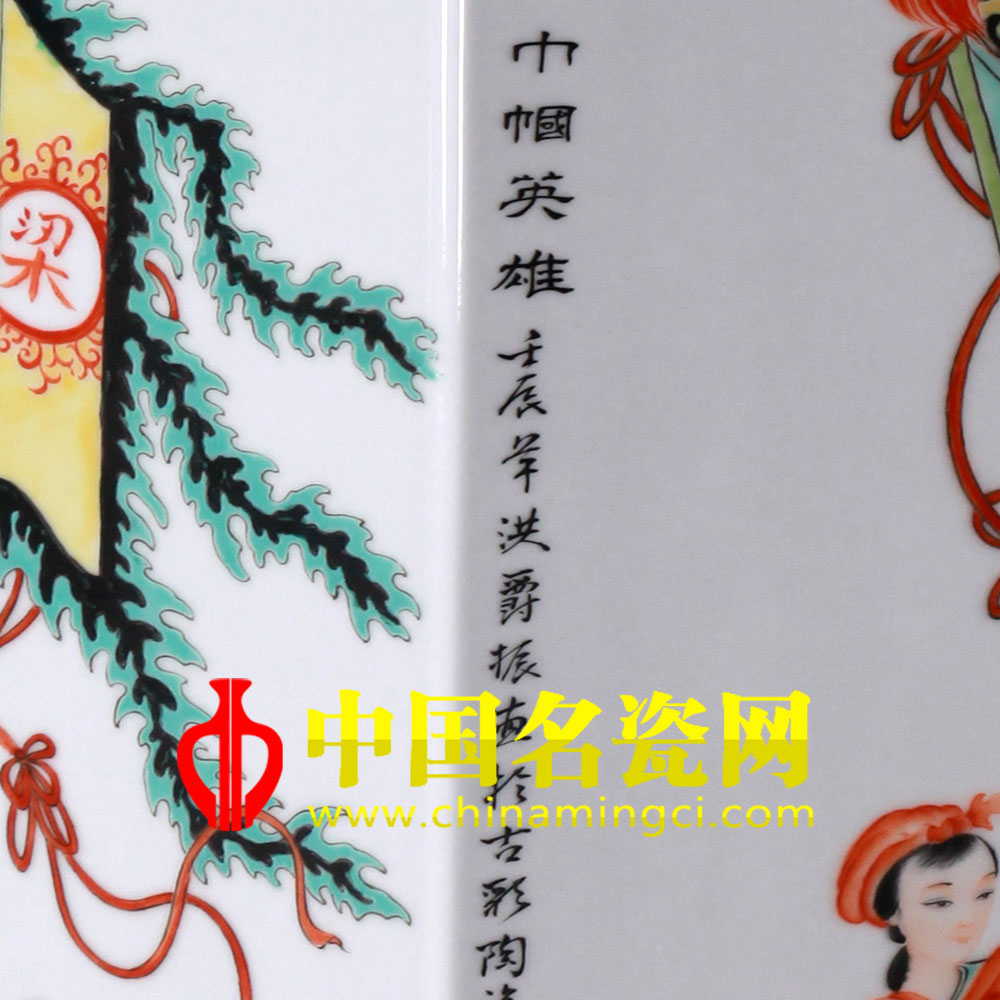 梁
巾帼英雄
壬辰年洪爵振画於古彩陶
中国名瓷网
www.chinamingci.com